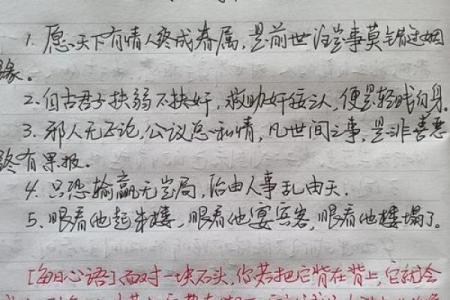 1. 愿天下有情人终成眷属，是前世注定事莫错过姻
缘。
2. 自古君子扶弱不扶奸，救助奸佞认，便是轻贱自身。
3. 邪人无正论，公议总和情，凡世间之事，是非善恶
终有果报。
4. 只恐输赢无定局，治由人事乱由天。
5. 眼看他起朱楼，眼看他宴宾客，眼看他楼塌了。
[每日心语] 面对一块石头，你若把它背在背上，它就会